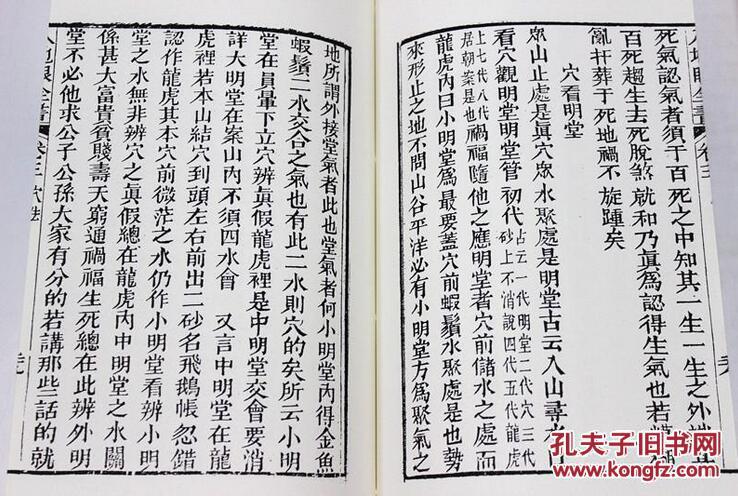 死氣認氣者須于百死之中知其一生一生之外
百死趨生去死脫煞就和乃眞爲認得生氣也若
亂扦葬于死地禍不旋踵矣
穴看明堂
眾山止處是眞穴眾水聚處是明堂古云入山尋水口
看穴觀明堂明堂管初代占云一代明堂二代穴三代砂上不消說四代五代龍虎
上七代八代居朝案是也禍福隨他之應明堂者穴前儲水之處而
龍虎內曰小明堂爲最要蓋穴前蝦鬚水聚處是也勢
來形止之地不問山谷平洋必有小明堂方爲聚氣之
地所謂外接堂氣者此也堂氣者何小明堂內得金魚
蝦鬚二水交合之氣也有此二水則穴的矣所云小明
堂在員暈下立穴辨眞假龍虎裡是中明堂交會要消
詳大明堂在案山內不須四水會 又言中明堂在龍
虎裡若本山結穴到頭左右前出二砂名飛鵝帳忽錯
認作龍虎其本穴前微茫之水仍作小明堂看辨小明
堂之水無非辨穴之眞假總在龍虎內中明堂之水關
係甚大富貴貧賤壽夭窮通禍福生死總在此辨外明
堂不必他求公子公孫大家有分的若講那些話的就
卷三
卷之三 穴法
孔夫子旧书网
www.kongfz.com